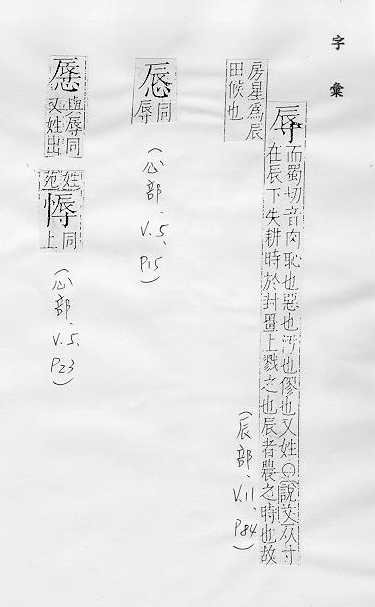 字彙
辱
而蜀切音肉恥也惡也汚也僇也又姓○說文从寸
在辰下失耕時於封畺上戮之也辰者農之時也故
房星為辰
田候也
(辰部.V.11, P84)
同
辱
(心部.V.5, P15)
與辱同
又姓出
姓
苑
同
上
(心部.V.5, P23)